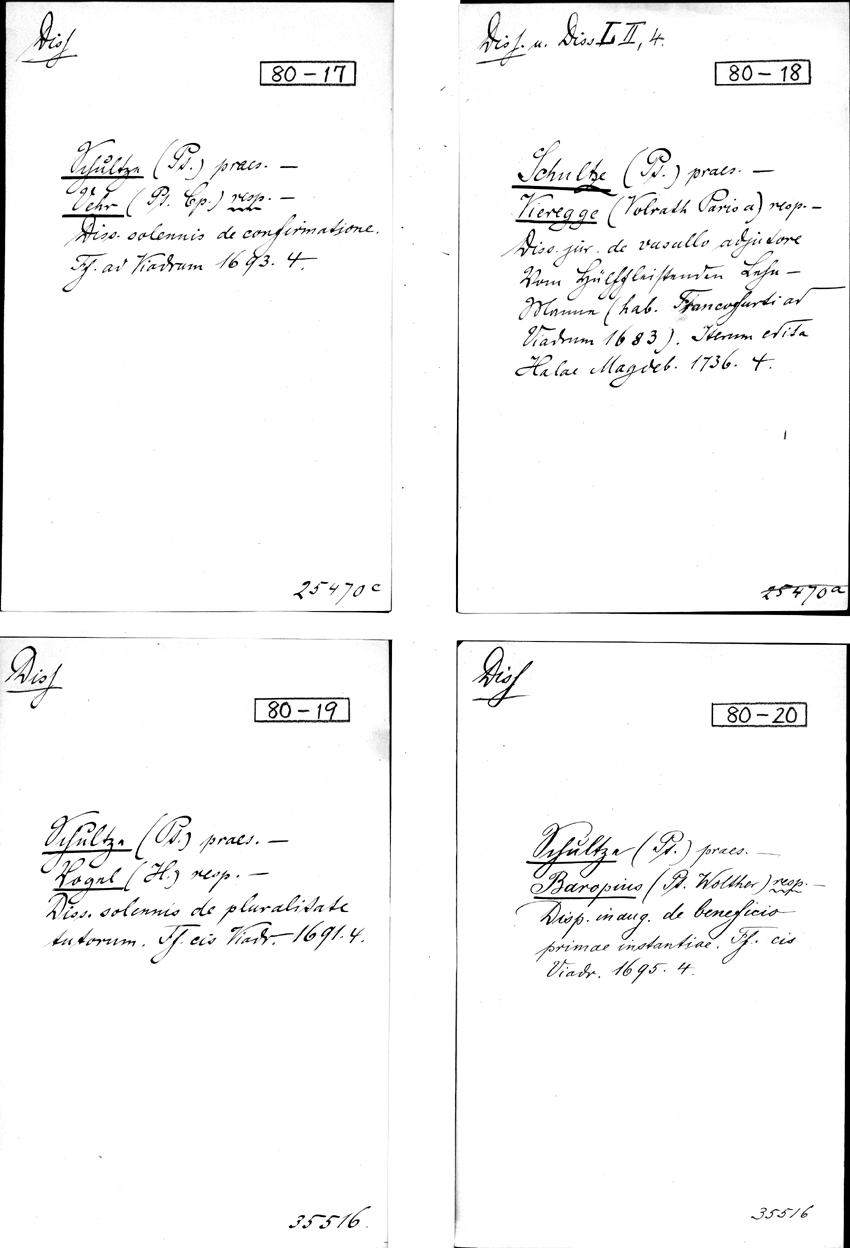 Diss
80-17
Schultze (Pt.) praes. —
Vehr (Pt. Cp.) resp. —
Diss. solennis de confirmatione.
Ff. ad Viadrum 1693. 4.
25470c
Diss. u. Diss. L II, 4.
80-18
Schultze (Pt.) praes. —
Vieregge (Volrath Paris a) resp. —
Diss. jur. de vasallo adjutore
Vom Hülffleistenden Lehn-
Manne (hab. Francofurti ad
Viadrum 1683). Iterum edita
Halae Magdeb. 1736. 4.
25470a
Diss
80-19
Schultze (Pt.) praes. —
Vogel (H.) resp. —
Diss. solennis de pluralitate
tutorum. Ff. cis Viadr. 1691. 4.
35516.
Diss
80-20
Schultze (Pt.) praes. —
Baropius (Pt. Wolther) resp. —
Disp. inaug. de beneficio
primae instantiae. Ff. cis
Viadr. 1695. 4.
35516